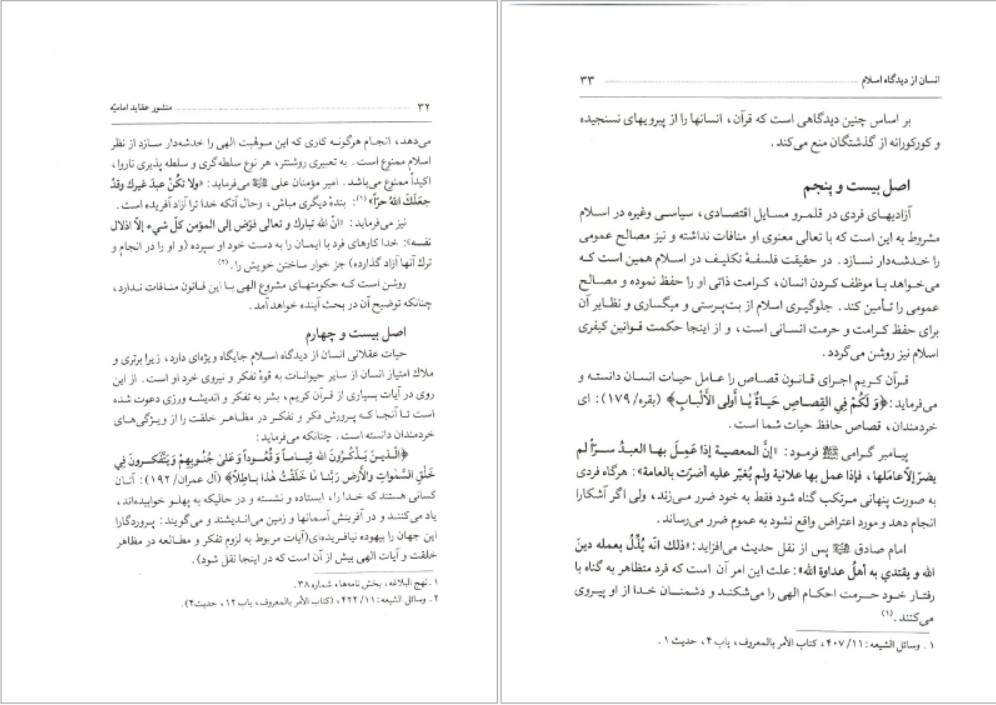 ۳۲ منشور عقاید امامیّه
می‌دهد، انجـام هرگونـه کاری که این مـوهبت الهی را خدشه‌دار سـازد از نظر
اسلام ممنوع است. به تعبیری روشنتر، هر نوع سلطه‌گری و سلطه پذیری ناروا،
اکیداً ممنوع می‌باشد. امیر مؤمنان علی ﷺ می‌فرماید: «ولا تکُنْ عبدَ غیرك وقدْ
جعلَكَ اللهُ حرّاً»(۱): بندهٔ دیگری مباش، وحال آنکه خدا ترا آزاد آفریده است.
نیز می‌فرماید: «انّ الله تبارك و تعالی فوّض إلی المؤمن کلّ شيء إلاّ اذلال
نفسه»: خدا کارهای فرد با ایمان را به دست خود او سپرده (و او را در انجام و
ترك آنها آزاد گذارده) جز خوار ساختن خویش را.(۲)
روشن است که حکومتهای مشروع الهی با این قانون منافات نـدارد،
چنانکه توضیح آن در بحث آینده خواهد آمد.
اصل بیست و چهارم
حیات عقلانی انسان از دیدگاه اسـلام جایگاه ویژه‌ای دارد، زیرا برتری و
ملاك امتیاز انسان از سایر حیوانات به قوهٔ تفکر و نیروی خرد او است. از این
روی در آیات بسیاری از قرآن کریم، بشر به تفکر و اندیشه ورزی دعوت شده
است تـا آنجـا کـه پـرورش فکر و تفکـر در مظـاهر خلقت را از ویـژگی‌های
خردمندان دانسته است. چنانکه می‌فرماید:
﴿الَّـذیـنَ یَـذْکُـرُونَ الله قِیـامـاً وَ قُعُـوداً وَعَلیٰ جُنُـوبِهِمْ وَیَتَفَکـرونَ فِي
خَلْقِ السَّمٰواتِ والأرضِ رَبَّنا مٰا خَلَقْتُ هٰذا بـاطِلاً﴾ (آل عمران/۱۹۲): آنـان
کسانی هستند که خـدا را، ایستاده و نشسته و در حالیکه به پهلو خوابیده‌اند،
یاد می‌کننـد و در آفرینش آسمانها و زمین می‌اندیشند و می‌گویند: پروردگارا
این جهان را بیهوده نیافریده‌ای(آیات مربوط به لزوم تفکر و مطالعه در مظاهر
خلقت و آیات الهی بیش از آن است که در اینجا نقل شود).
۱. نهج البلاغه، بخش نامه‌ها، شماره ۳۸.
۲. وسائل الشیعه: ۱۱/ ۴۲۴، (کتاب الأمر بالمعروف، باب ۱۲، حدیث۴).
انسان از دیدگاه اسلام ۳۳
بر اساس چنین دیدگاهی است که قرآن، انسانها را از پیرویهای نسنجیده
و کورکورانه از گذشتگان منع می‌کند.
اصل بیست و پنجم
آزادیهای فردی در قلمرو مسایل اقتصادی، سیاسی وغیره در اسلام
مشروط به این است که با تعالی معنوی او منافات نداشته و نیز مصالح عمومی
را خدشه‌دار نسازد. در حقیقت فلسفهٔ تکلیف در اسلام همین است که
می‌خواهد بـا موظف کردن انسان، کرامت ذاتی او را حفظ نموده و مصـالح
عمومی را تأمین کند. جلوگیری اسلام از بت‌پرستی و میگساری و نظـایر آن
برای حفظ کـرامت و حرمت انسـانی است، و از اینجا حکمت قوانین کیفری
اسلام نیز روشن می‌گردد.
قـرآن کـریم اجرای قـانون قصـاص را عـامل حیـات انسـان دانستـه و
می‌فرماید:﴿وَ لَکُمْ فِي القِصـاصِ حَیـاةٌ یٰـا أُولی الأَلْبـابِ﴾ (بقره/ ۱۷۹): ای
خردمندان، قصاص حافظ حیات شما است.
پیـامبر گرامی ﷺ فرمـود: «إنَّ المعصیـة إذا عَمِـلَ بهـا العبـدُ سـرّاً لم
یضرّ إلاّ عامَلها، فإذا عمل بها علانیة ولم یُغیّر علیه أضرّت بالعامة»: هرگاه فردی
به صورت پنهانی مـرتکب گناه شود فقط به خود ضرر مـی‌زند، ولی اگر آشکارا
انجام دهد و مورد اعتراض واقع نشود به عموم ضرر می‌رساند.
امام صادق ﷺ پس از نقل حدیث می‌افزاید:«ذلك انّه یُذِلُّ بعمله دینَ
الله و یقتدي به أهلُ عداوة الله»: علت این امر آن است که فرد متظاهر به گناه با
رفتـار خـود حـرمت احکـام الهی را می‌شکنـد و دشمنـان خـدا از او پیـروی
می‌کنند.(۱)
۱. وسائل الشیعه: ۱۱/ ۴۰۷، کتاب الأمر بالمعروف، باب ۴، حدیث ۱.